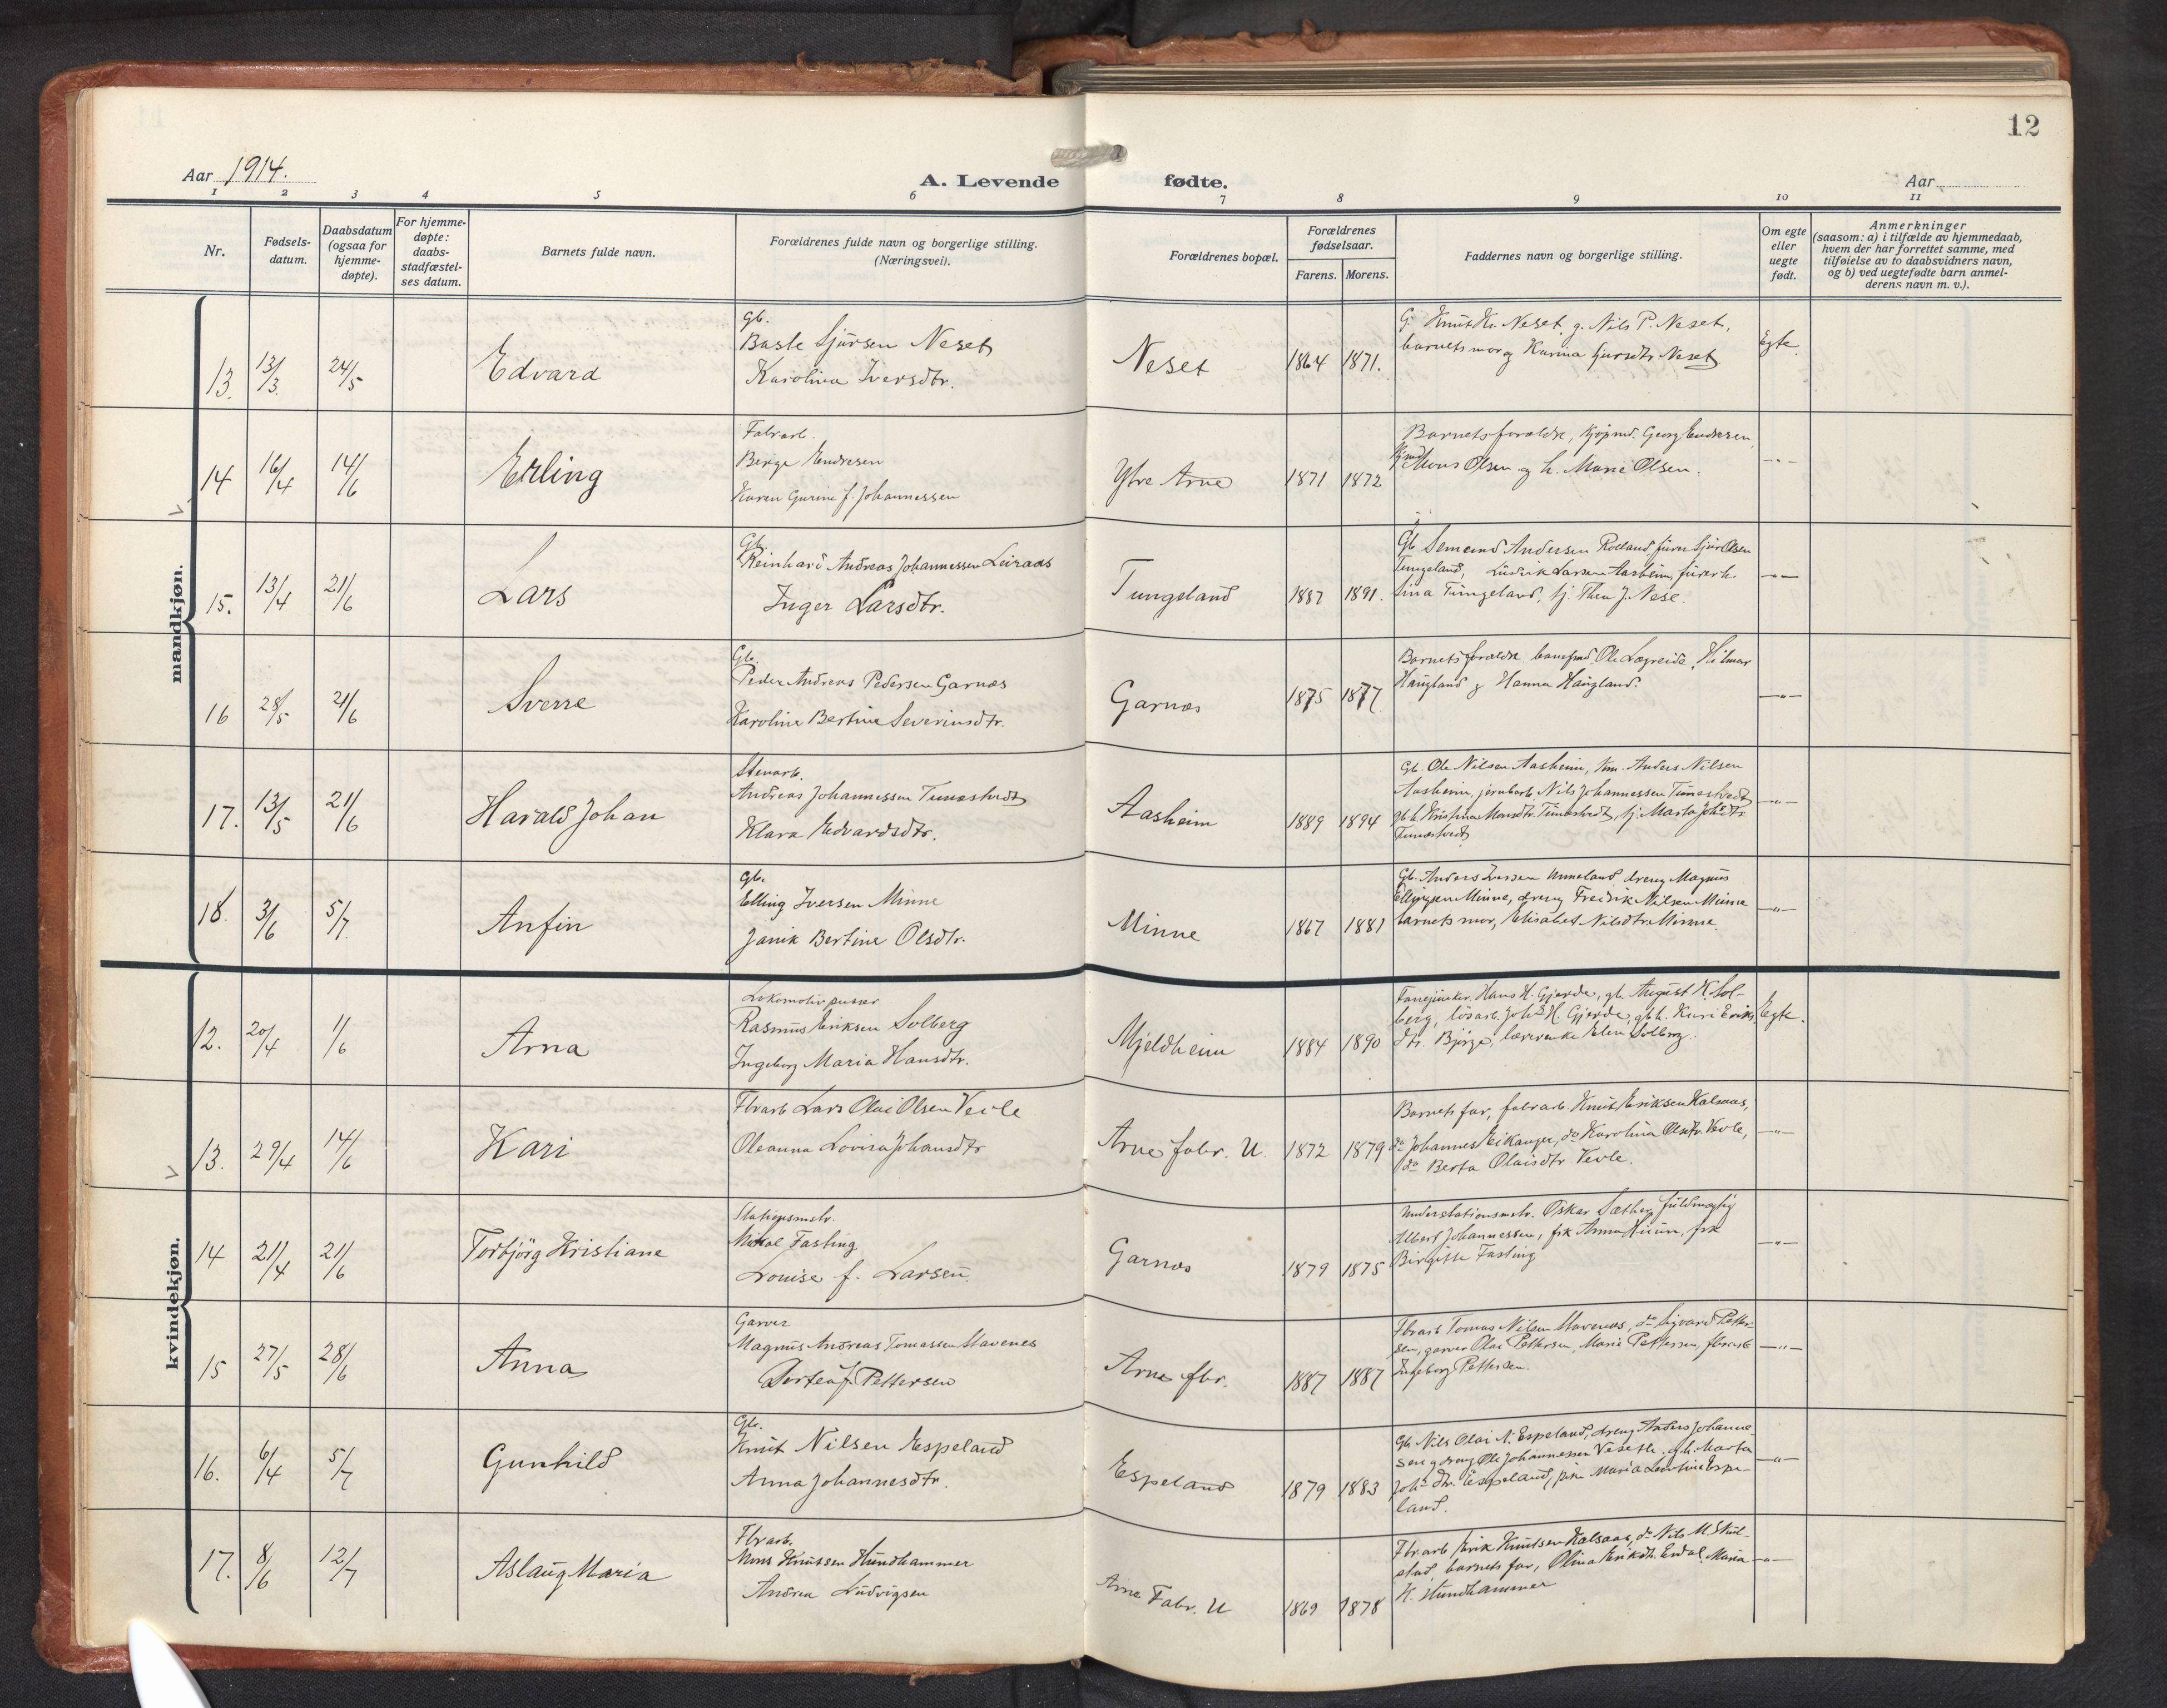 12
Aar 1914.
A. Levende fødte.
Aar
1 2 3 4 5 6 7 8 9 10 11
Nr.
Fødsels-
datum.
Daabsdatum
(ogsaa for
hjemme-
døpte).
For hjemme-
døpte:
daabs-
stadfæstel-
ses datum.
Barnets fulde navn.
Forældrenes fulde navn og borgerlige stilling.
(Næringsvei).
Forældrenes bopæl.
Forældrenes
fødselsaar.
Farens. Morens.
Faddernes navn og borgerlige stilling.
Om egte
eller
uegte
født.
Anmerkninger
(saasom: a) i tilfælde av hjemmedaab,
hvem der har forrettet samme, med
tilføielse av to daabsvidners navn,
og b) ved uegtefødte barn anmel-
derens navn m. v.).
mandkjøn.
13. 13/3 24/5 Edvard
Gb.
Basle Sjursen Neset
Karolina Iversdtr.
Neset 1864 1871.
G. Knut Kr. Neset, g. Nils P. Neset,
barnets mor og Karina Sjursdtr Neset
Egte
14 16/4 14/6 Erling
Fabrarb.
Berge Endresen
Karen Gurine f. Johannessen
Ytre Arne 1871 1872
Barnets forældre, kjøpmd. Georg Endresen,
Mons Olsen og h. Marie Olsen.
-"-
15. 13/4 21/6 Lars
Gb.
Reinhard Andreas Johannessen Leiraas
Inger Larsdtr.
Tungeland 1887 1891.
Gb Semund Andersen Rolland, Sjur Olsen
Tungeland, Ludvik Larsen Aasheim,
Sina Tungeland, pj. Thea J. Nese.
-"-
16 28/5 21/6 Sverre
Gb.
Peder Andreas Pedersen Garnæs
Karoline Bertine Severinsdtr.
Garnæs 1875 1877
Barnets forældre, Ole Lægreide, Hilmar
Haugland og Hanna Haugland.
-"-
17. 13/5 21/6 Harald Johan
Stenarb.
Andreas Johannessen Tunæstvedt
Klara Edvardsdtr.
Aasheim 1889 1894
Gb. Ole Nilsen Aasheim, Anders Nilsen
Aasheim, jernbarb. Nils Johannessen Tunæstvedt
gbh. Kristina Monsdtr. Tunæstvedt, pj. Marta Johsdtr
Tunæstvedt
-"-
18. 3/6 5/7 Anfin
Gb.
Elling Iversen Minne
Janik Bertine Olsdtr.
Minne 1867 1881
Gb. Anders Iversen Unneland, dreng Magnus
Ellingsen Minne, dreng Fredrik Nilsen Minne
barnets mor, Elisabet Nilsdtr. Minne.
-"-
kvindekjøn.
12. 20/4 1/6 Arna
Lokomotivpusser
Rasmus Eriksen Solberg
Ingeborg Maria Hansdtr.
Mjeldheim 1884 1890
Fanejunker Hans H. Gjerde, gb. August K. Sol-
berg, løsarb. Johs H. Gjerde, gbh. Kari Eriks-
dtr. Bjørge, Elen Solberg.
Egte.
13. 29/4 14/6 Kari
Fbrarb Lars Olai Olsen Veole
Oleanna Lovisa Johansdtr
Arne fabr. U. 1872 1879
Barnets far, fabrarb. Knut Eriksen Kalsaas,
do Johannes Eikanger, do Karolina Olsdtr. Veole,
do Berta Olaisdtr Veole.
-"-
14 21/4 21/6 Torbjörg Kristiane
Stationsmstr.
Mikal Fasting
Louise f. Larsen.
Garnæs 1879 1875
Understationsmstr. Oskar Sæther, fuldmægtig
Albert Johannessen, frk Anna, frk
Birgitte Fasting
-"-
15 27/5 28/6 Anna
Garver
Magnus Andreas Tomassen Stavenes
Dortea f. Pettersen
Arne fbr. 1887 1887
Fbrarb Tomas Nilsen Stavenes, do Sigvard Petter-
sen, garver Olai Pettersen, Marie Pettersen, fbrarb
Ingeborg Pettersen.
-"-
16. 6/4 5/7 Gunhild
Gb.
Knut Nilsen Espeland
Anna Johannesdtr.
Espeland 1879 1883
Gb. Nils Olai N. Espeland, dreng Anders Johannes-
sen og dreng Ole Johannessen, gbh. Marta
Johs dtr. Espeland, pike Maria Espe-
land.
-"-
17. 8/6 12/7 Aslaug Maria
Fbrarb.
Mons Knutsen Hundhammer
Andrea Ludvigsen
Arne Fabr. U 1869 1878
Fbrarb Erik Knutsen Kalsaas, do Nils M.
barnets far, Olina Eriksdtr. Maria
K. Hundhammer
-"-